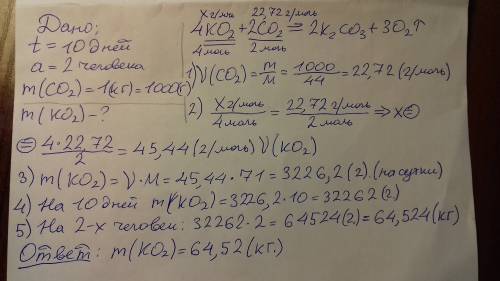 Дано:
t = 10 дней
a = 2 человека
m(CO₂) = 1(кг) = 1000(г)
m(KO₂) - ?
x г/моль 22,72 г/моль
4KO₂ + 2CO₂ = 2K₂CO₃ + 3O₂↑
4 моль 2 моль
1) ν(CO₂) = m/M = 1000/44 = 22,72 (г/моль)
2) x г/моль / 4 моль = 22,72 г/моль / 2 моль ⇒ x =
= 4·22,72 / 2 = 45,44 (г/моль) ν(KO₂)
3) m(KO₂) = ν·M = 45,44·71 = 3226,2 (г) (на сутки)
4) На 10 дней m(KO₂) = 3226,2·10 = 32262 (г)
5) На 2-х человек: 32262·2 = 64524(г) = 64,524 (кг)
Ответ: m(KO₂) = 64,52 (кг.)